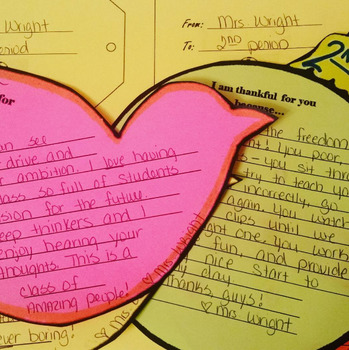 Wright
period
From: Mrs Wright
To: 2ND period
2N
for
I am thankful for you
because...
an see
drive and
ambition. I love having
class so full of students
sion for the future
eep thinkers and I
enjoy hearing your
thoughts. This is a
class of
Amazing people!
♡ Mrs Wright
the freedom
! You poor
s - you sit thr
try to teach yo
incorrectly, go
again. You watch
clips until we
ght one. You work
fun, and provide
nice start to
my day
hanks guys!
♡ Mrs Wright
♡ Mrs
ever boring!